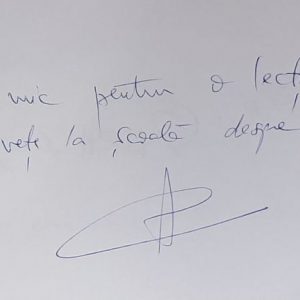 mic pentru o lecț
veți la școală despre